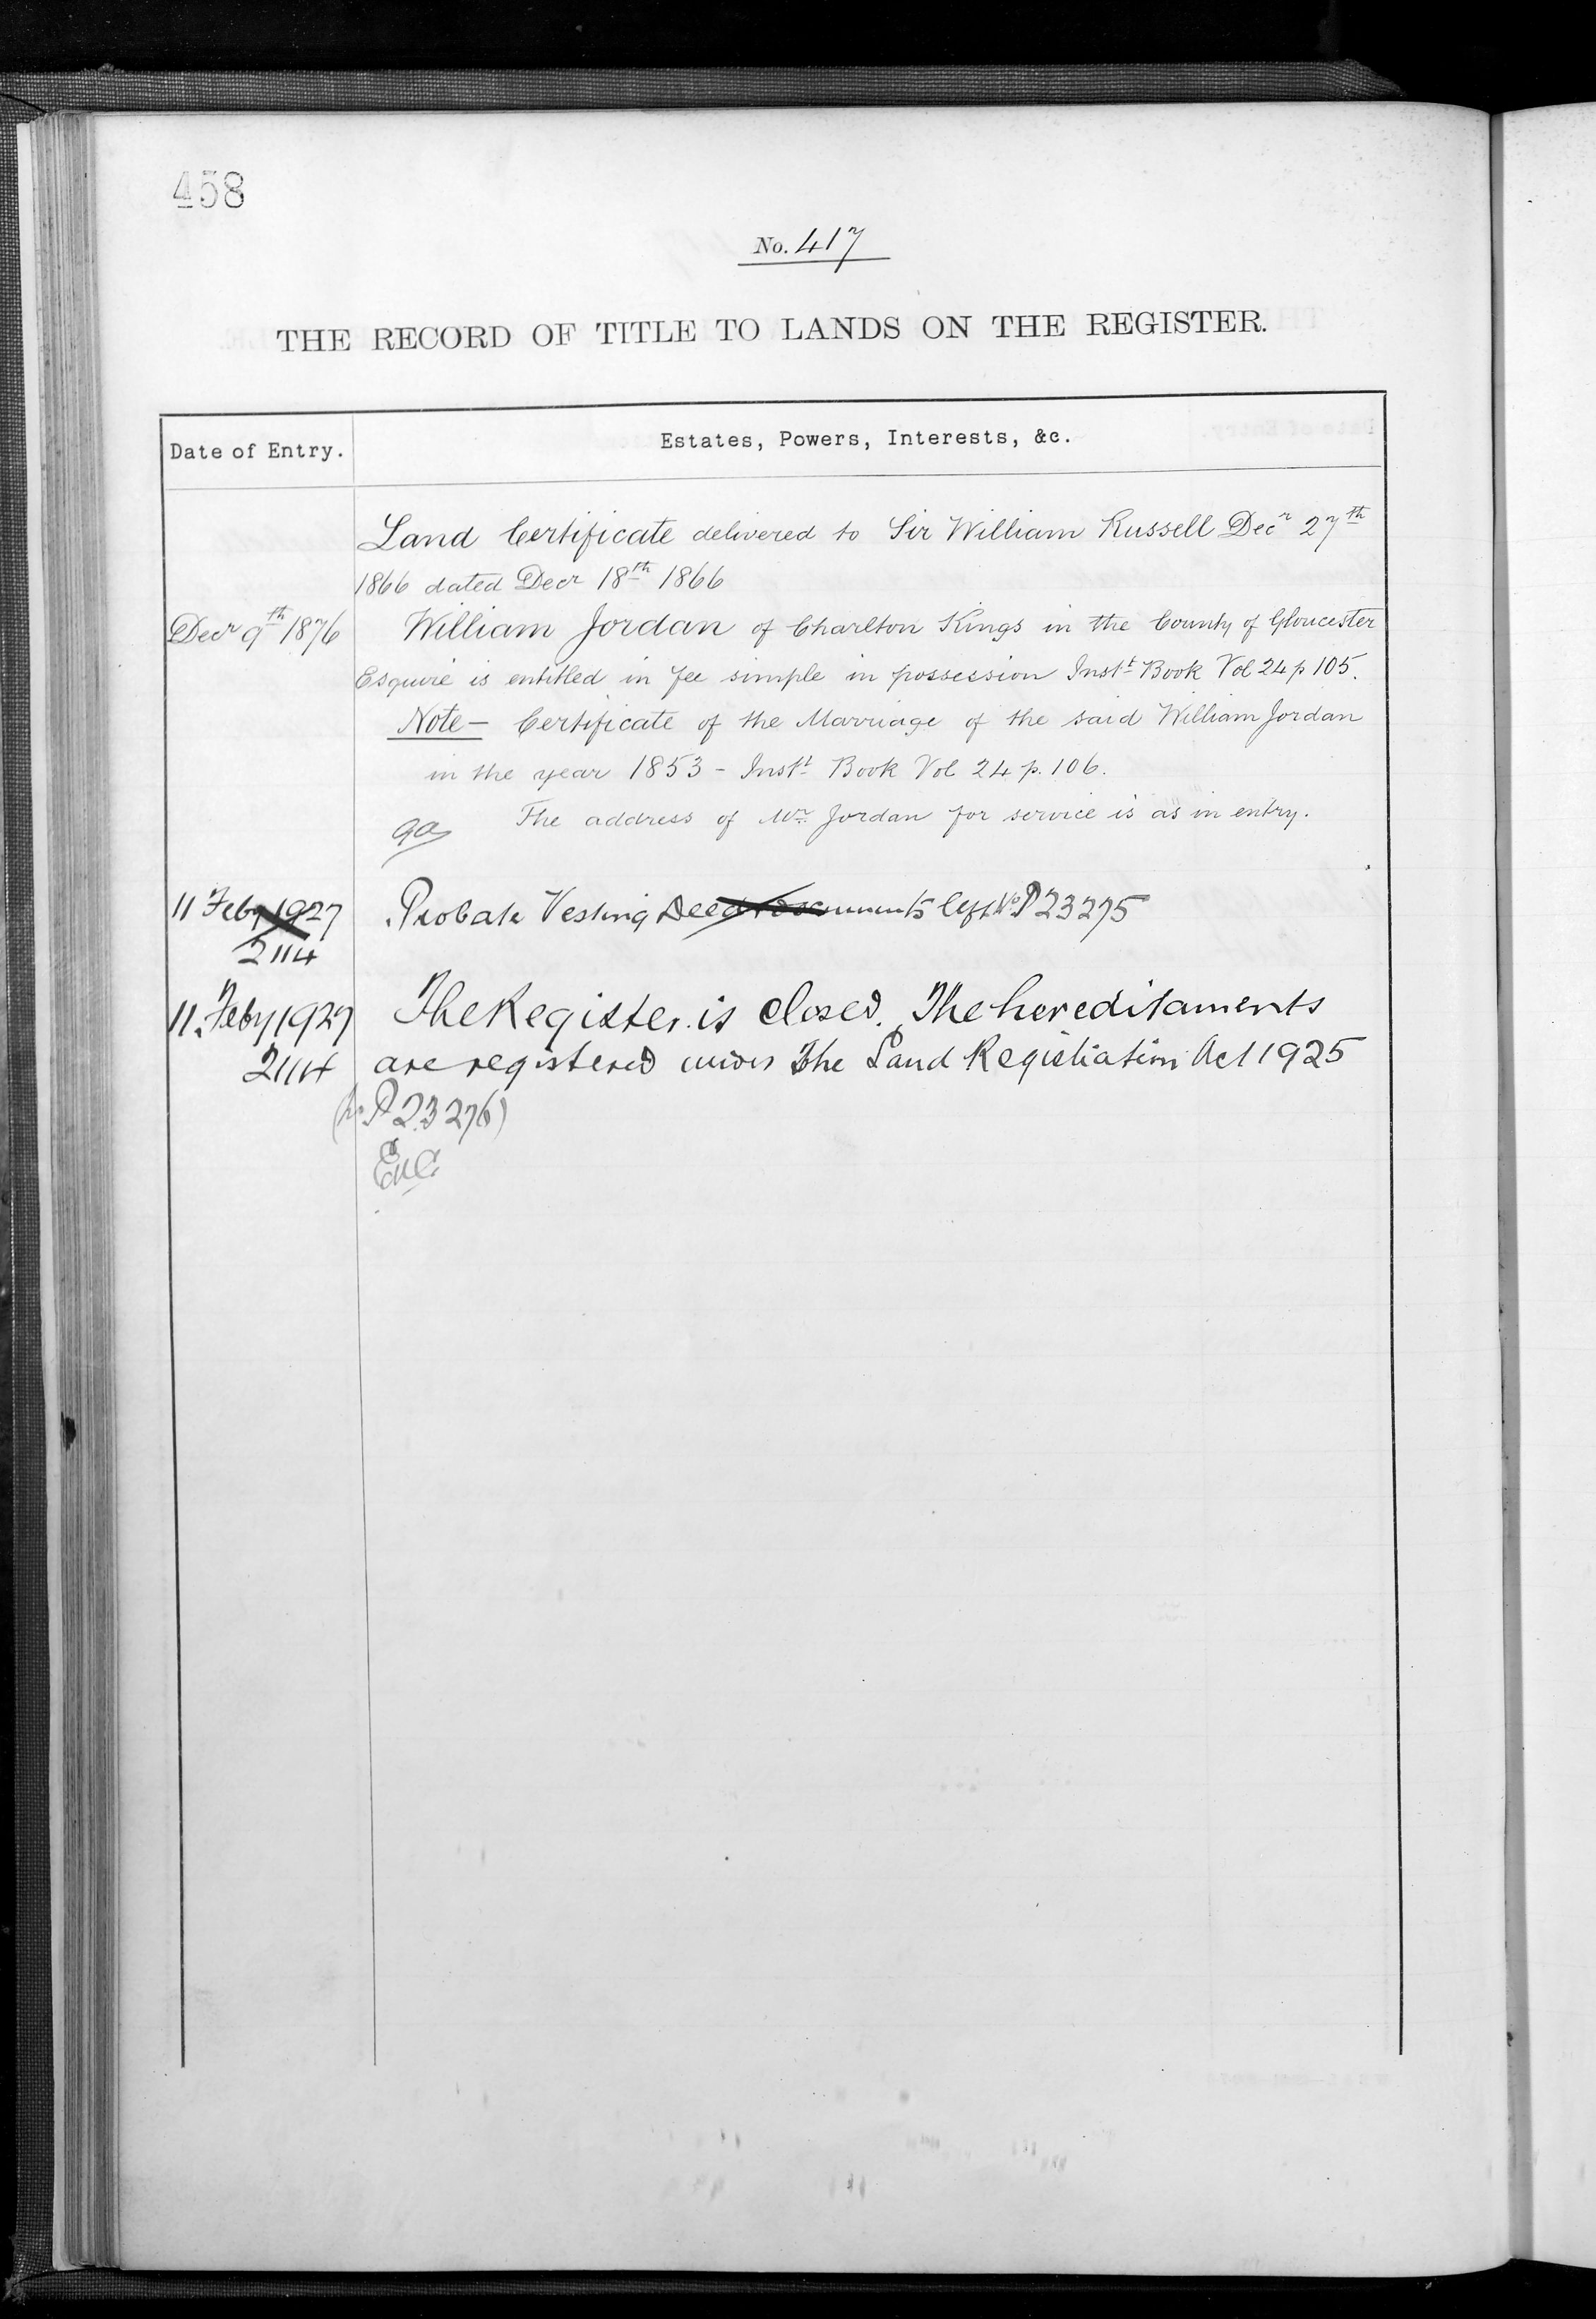 458
No. 417
THE RECORD OF TITLE TO LANDS ON THE REGISTER.
Date of Entry.
Estates, Powers, Interests, &c.
Land Certificate delivered to Sir William Russell Decr 27th
1866 dated Decr 18th 1866
Decr 9th 1876
William Jordan of Charlton Kings in the County of Gloucester
Esquire is entitled in fee simple in possession Inst.t Book Vol 24 p 105.
Note— Certificate of the Marriage of the said William Jordan
in the year 1853 - Inst.t Book Vol 24 p. 106.
The address of Mr. Jordan for service is as in entry.
11 Feby 1927
2114
Probate Vesting Deed documents left No P 23275
11. Feby 1927
2114
The Register is closed. The hereditaments
are registered under The Land Registration Act 1925
(No P 23276)